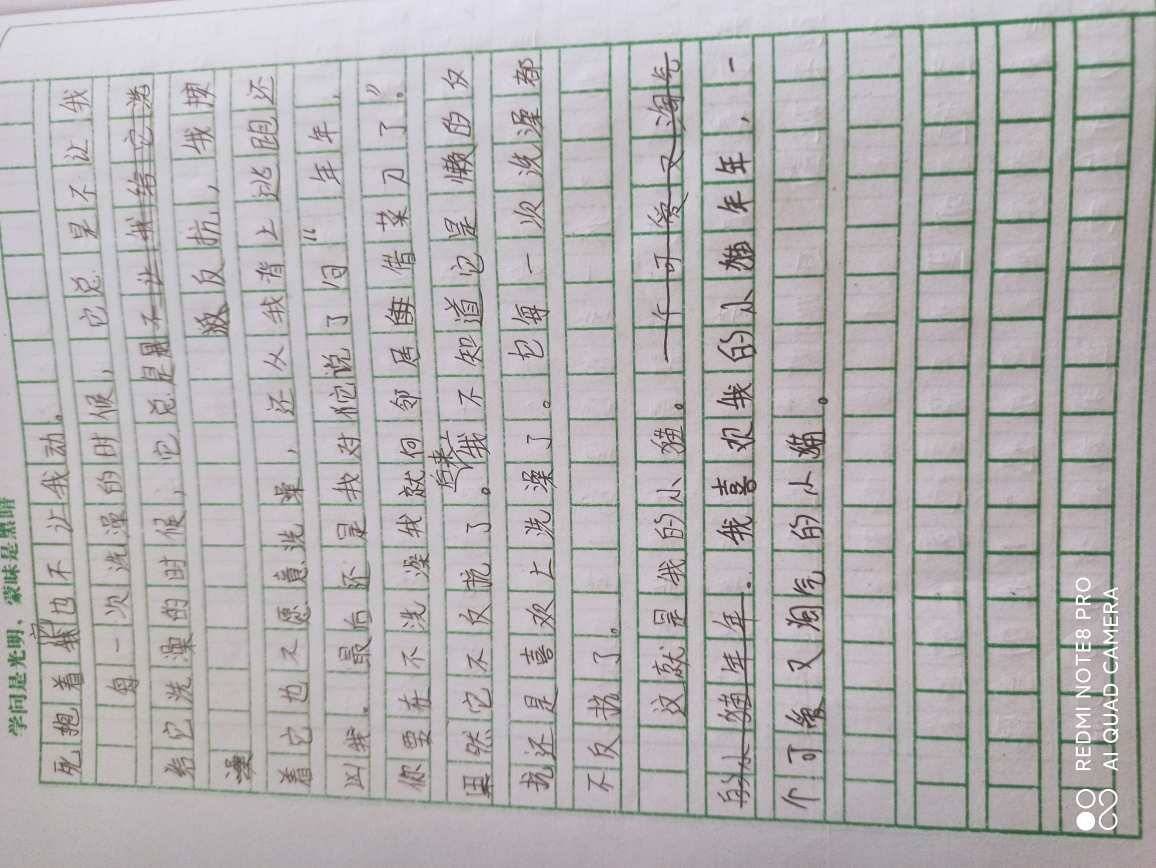 学问是光明，蒙昧是黑暗
死抱着它也不让我动。
每一次洗澡的时候，它说是不让我
给它洗澡的时候，它说是
澡 激反抗，我按
着它也不愿意洗澡，还从我背上逃跑还
凶我。最后还是我对它说了句“年年，
你要在不洗澡我就向邻居借菜刀了。”
果然它不反抗了。后来我不知道它是懒的反
抗还是喜欢上洗澡了。它每一次洗澡都
不反抗了。
这就是我的小猫。一个可爱又淘气
的小猫年年。我喜欢我的小猫年年，一
个可爱又淘气的小猫。
REDMI NOTE8 PRO
AI QUAD CAMERA